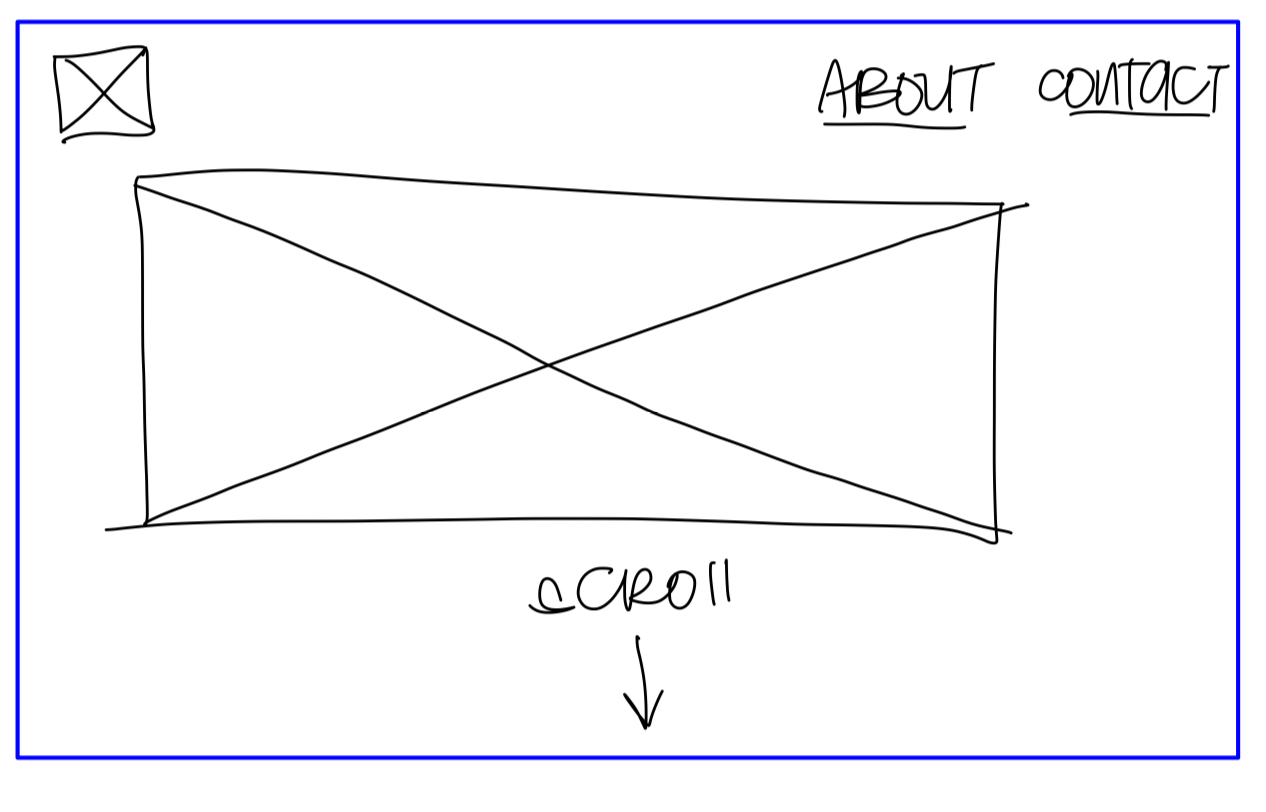 ABOUT CONTACT
SCROLL